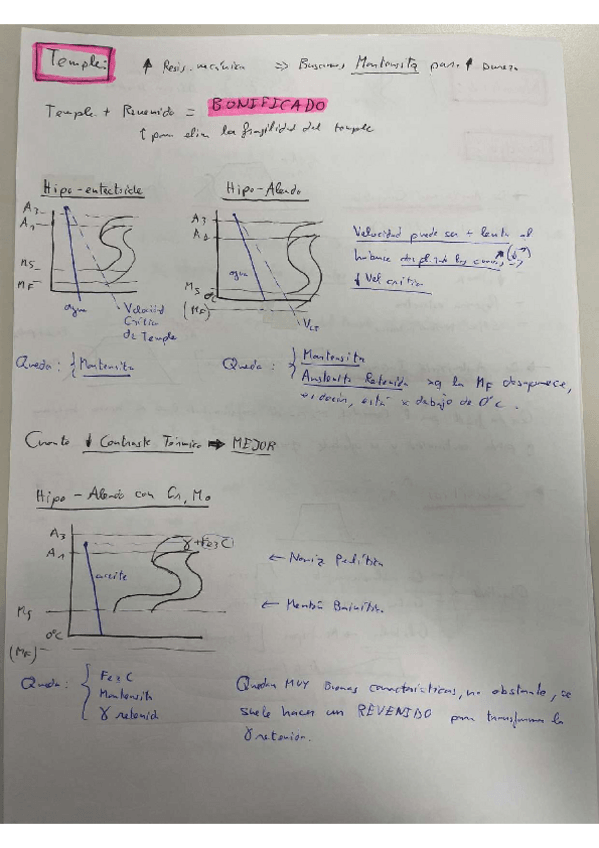 Temple: ↑ Resis. mecánica ⇒ Buscamos Martensita para ↑ dureza
Temple + Revenido = BONIFICADO
↑ para elim la fragilidad del temple
Hipo-eutectoide Hipo-Aleado
A3
A1
MS
MF
agua
Velocidad
Crítica
de Temple
A3
A1
agua
MS
0ºC
(MF)
Velocidad puede ser + lenta al
haberse desplazado las curvas
↓ Vel crítica
Queda: { Martensita
Queda: { Martensita
Austenita Retenida xq la MF desaparece,
es decir, está x debajo de 0ºC.
Cuanto ↓ Contraste Térmico ⇒ MEJOR
Hipo-Aleado con Cr, Mo
A3
A1
γ+Fe3C
aceite
MS
0ºC
(MF)
← Nariz Perlítica
← Bainítica
Queda: { Fe3C
Martensita
γ retenida
Quedan MUY buenas características, no obstante, se
suele hacer un REVENIDO para transformar la
γ